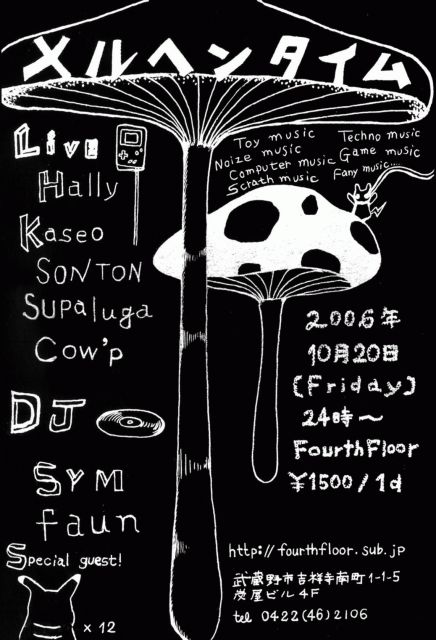 メルヘンタイム
Live
Hally
Kaseo
SONTON
SUPaluga
Cow'p
DJ
SYM
faun
Special guest!
× 12
Toy music
Noize music
Computer music
Scrath music
Techno music
Game music
Fany music...
2006年
10月20日
(Friday)
24時〜
FourthFloor
¥1500/1d
http://fourthfloor.sub.jp
武蔵野市吉祥寺南町1-1-5
炭屋ビル4F
tel 0422(46)2106